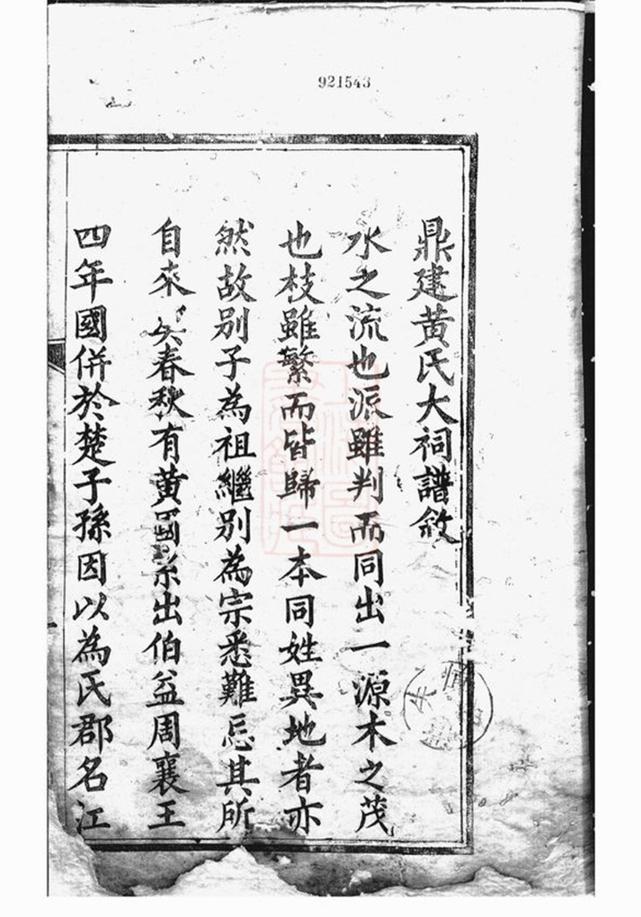 921543
鼎建黄氏大祠譜敘
水之流也派雖判而同出一源木之茂
也枝雖繁而皆歸一本同姓異地者亦
然故别子為祖繼别為宗悉難忘其所
自來矣春秋有黄國系出伯益周襄王
四年國併於楚子孫因以為氏郡名江